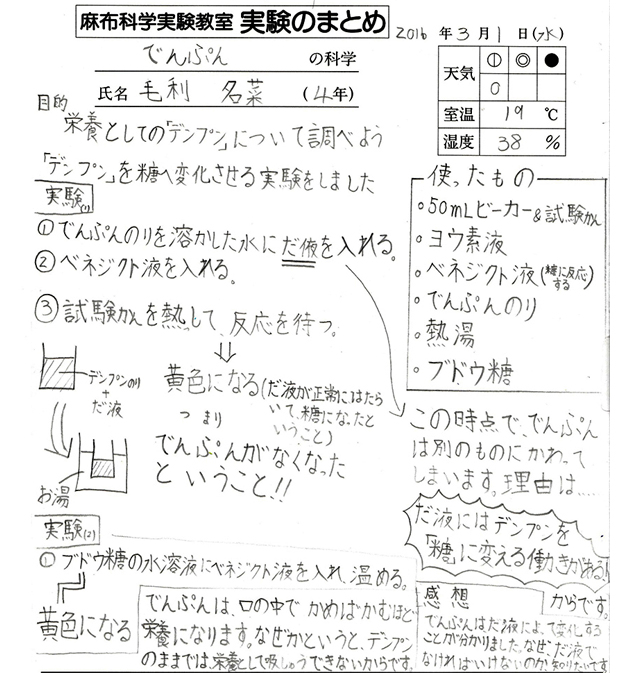 麻布科学実験教室 実験のまとめ
2016年3月1日(水)
でんぷん の科学
氏名 毛利 名菜 (4年)
天気 ○
室温 19 ℃
湿度 38 %
目的
栄養としての「デンプン」について調べよう
「デンプン」を糖へ変化させる実験をしました
実験(1)
①でんぷんのりを溶かした水にだ液を入れる。
②ベネジクト液を入れる。
③試験かんを熱して、反応を待つ。
⇓
黄色になる(だ液が正常にはたら
いて、糖になったと
いうこと)
つまり
でんぷんがなくなった
ということ!!
デンプンのり
+
だ液
お湯
使ったもの
・50mLビーカー&試験かん
・ヨウ素液
・ベネジクト液(糖に反応する)
・でんぷんのり
・熱湯
・ブドウ糖
この時点で、でんぷん
は別のものにかわって
しまいます。理由は....
だ液にはデンプンを
「糖」に変える働きがある!
からです。
実験(2)
①ブドウ糖の水溶液にベネジクト液を入れ、温める。
黄色になる
でんぷんは、口の中でかめばかむほど
栄養になります。なぜかというと、デンプン
のままでは、栄養として吸しゅうできないからです。
感想
でんぷんはだ液によって変化する
ことが分かりました。なぜ、だ液で
なければいけないのか、知りたいです